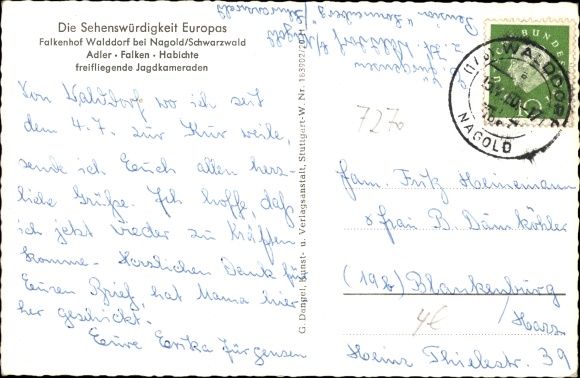 Die Sehenswürdigkeit Europas
Falkenhof Walddorf bei Nagold/Schwarzwald
Adler · Falken · Habichte
freifliegende Jagdkameraden
Von Walddorf wo ich seit
dem 4.7. zur Kur weile,
sende ich Euch allen herz-
liche Grüße. Ich hoffe, daß
ich jetzt wieder zu Kräften
komme. Herzlichen Dank für
Euren Brief, hat Mama hier
her geschickt.
Eure Erika Jürgensen
G. Dangel, Kunst- u. Verlagsanstalt, Stuttgart-W. Nr. 163902/20
Jürgensen
z. Zt. Walddorf b/Nagold
Pension "Sonnenberg" Schwarzwald
7270
DEUTSCHE BUNDESPOST
WALDDORF
NAGOLD
Fam. Fritz Heinemann
& Frau B. Dämköhler
(19b) Blankenburg
Harz
Heinz Thielestr. 39
4€